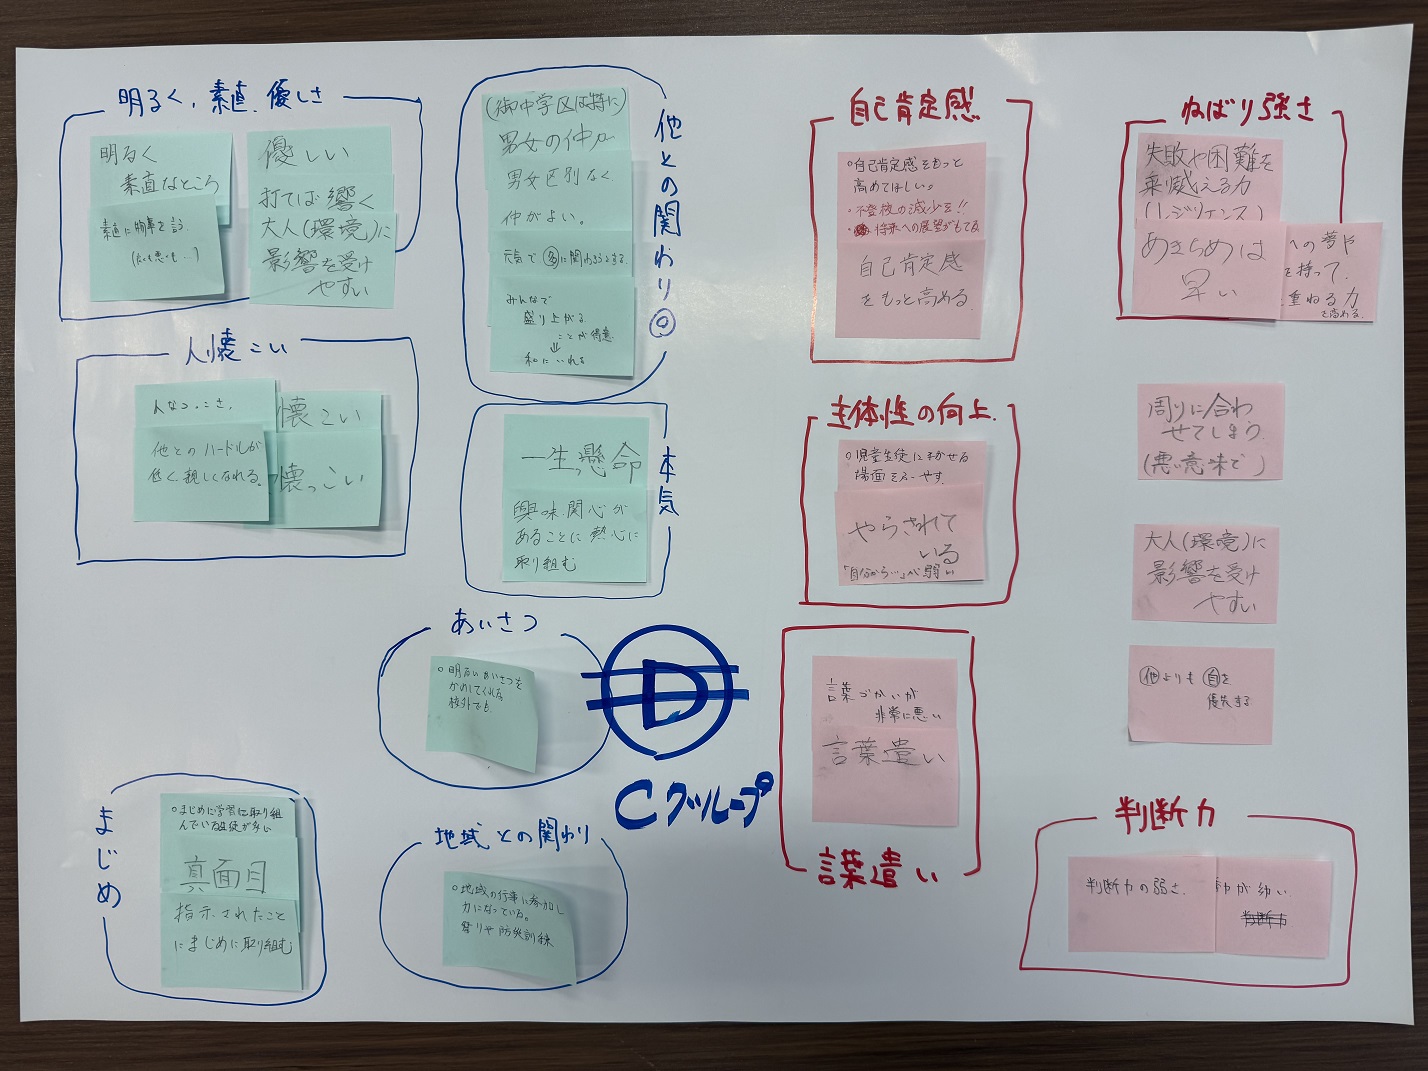 明るく、素直、優しさ
明るく
素直なところ
素直に物事を言う
優しい
打てば響く
大人(環境)に
影響を受け
やすい
人懐こい
人なつこさ、
他とのハードルが
低く親しくなれる。
懐こい
懐っこい
他との関わり◎
(御中学区は特に)
男女の仲
男女区別なく
仲がよい。
元気で
に関わろうとする。
みんなで
盛り上がる
ことが得意
⇓
和に いれる
本気
一生懸命
興味関心が
あることに熱心に
取り組む
あいさつ
○明るいあいさつを
校外でも
まじめ
○まじめに学習に取り組
んでいる生徒が多い
真面目
指示されたこと
にまじめに取り組む
地域との関わり
○地域の行事に参加し
力になっている。
祭りや防災訓練
D
Cグループ
自己肯定感
○自己肯定感をもっと
高めてほしい。
・不登校の減少を!!
・将来への展望がもてる
自己肯定感
をもっと高める
主体性の向上
○児童生徒にまかせる
場面をふやす
やらされて
いる
「自分から…」が弱い
言葉づかいが
非常に悪い
言葉遣い
言葉遣い
ねばり強さ
失敗や困難を
乗り越える力
(レジリエンス)
あきらめは
早い
への夢や
を持って、
重ねる力
を高める
周りに合わ
せてしまう
(悪い意味で)
大人(環境)に
影響を受け
やすい
他よりも自を
優先する
判断力
判断力の弱さ
が幼い